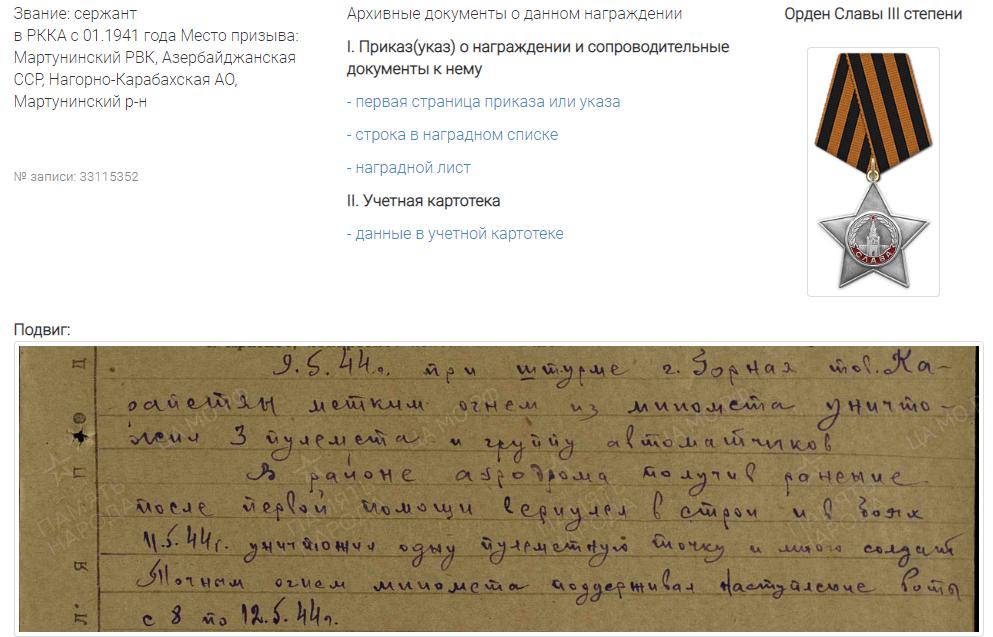 Звание: сержант
в РККА с 01.1941 года Место призыва:
Мартунинский РВК, Азербайджанская
ССР, Нагорно-Карабахская АО,
Мартунинский р-н
№ записи: 33115352
Архивные документы о данном награждении
I. Приказ(указ) о награждении и сопроводительные
документы к нему
- первая страница приказа или указа
- строка в наградном списке
- наградной лист
II. Учетная картотека
- данные в учетной картотеке
Орден Славы III степени
СЛАВА
Подвиг:
9.5.44г. при штурме г. Горная тов. Ка-
райетян метким огнем из миномета уничто-
жил 3 пулемета и группу автоматчиков
В районе аэродрома получив ранение
после первой помощи вернулся в строй и в боях
11.5.44г. уничтожил одну пулеметную точку и много солдат
Точным огнем миномета поддерживал наступление роты
с 8 по 12.5.44г.